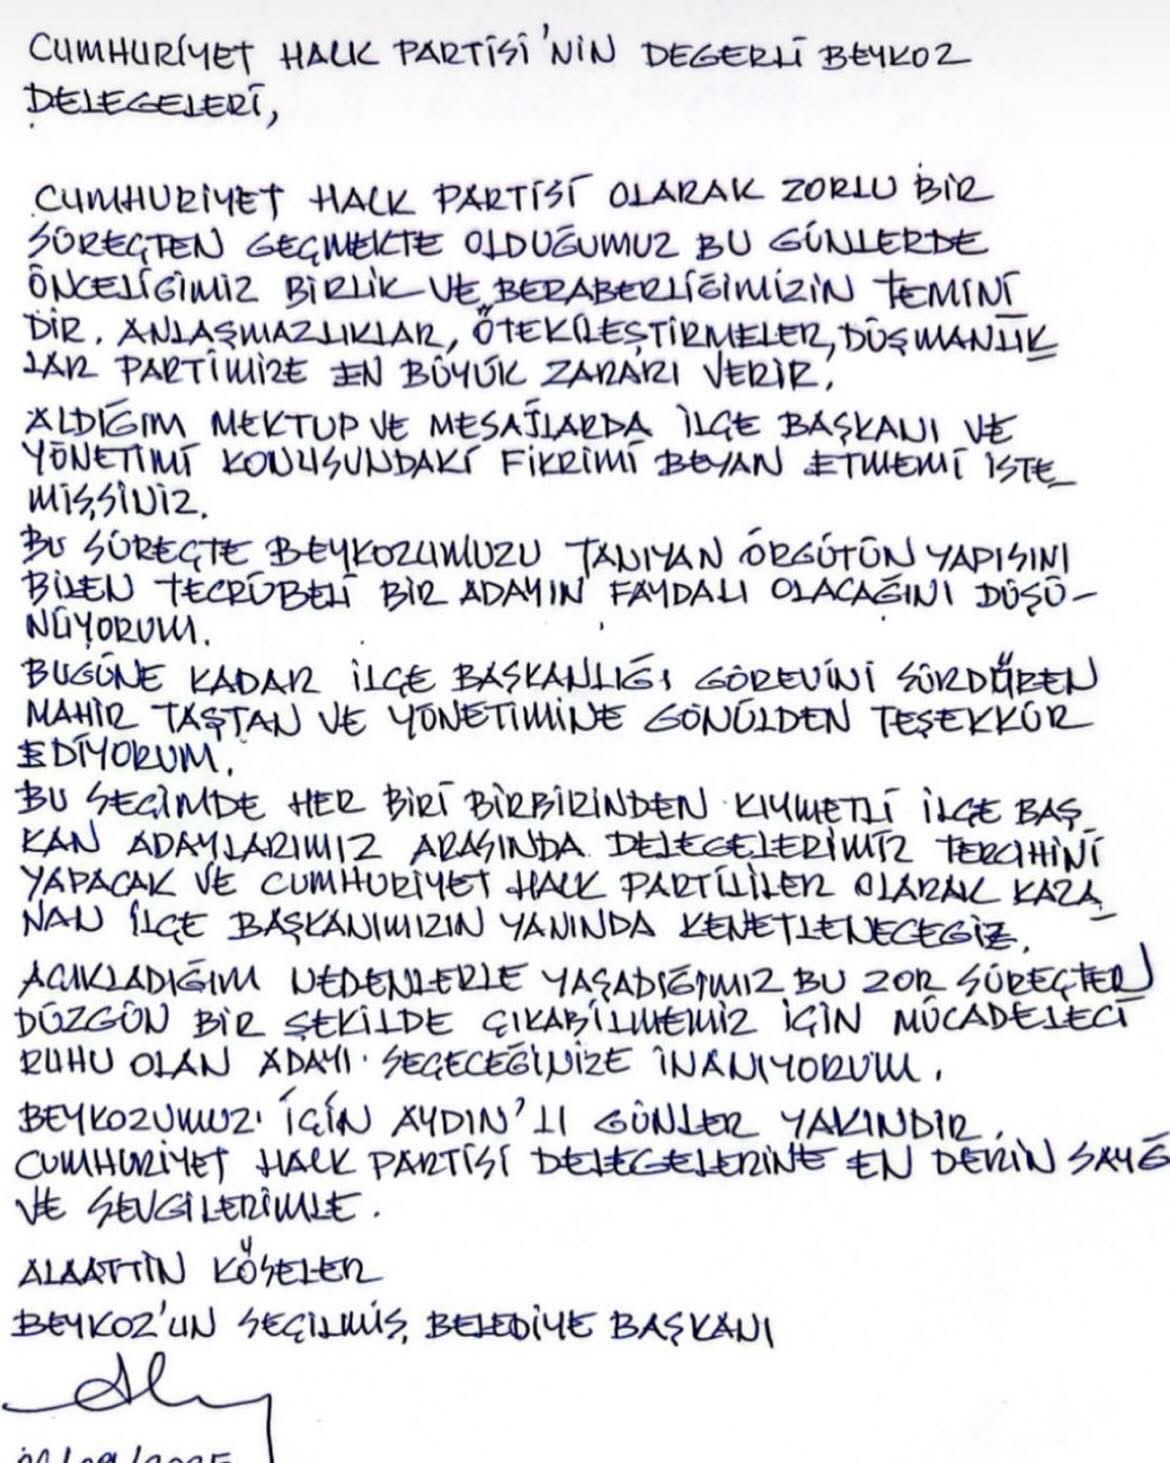 CUMHURİYET HALK PARTİSİ'NİN DEGERLİ BEYKOZ
DELEGELERİ,
CUMHURİYET HALK PARTİSİ OLARAK ZORLU BİR
SÜREÇTEN GEÇMEKTE OLDUĞUMUZ BU GÜNLERDE
ÖNCELİĞİMİZ BİRLİK VE BERABERLİĞİMİZİN TEMİNİ
DİR. ANLAŞMAZLIKLAR, ÖTEKİLEŞTİRMELER, DÜŞMANLIK
LAR PARTİMİZE EN BÜYÜK ZARARI VERİR.
ALDIĞIM MEKTUP VE MESAJLARDA İLÇE BAŞKANI VE
YÖNETİMİ KONUSUNDAKİ FİKRİMİ BEYAN ETMEMİ İSTE_
MİŞSİNİZ.
BU SÜREÇTE BEYKOZUMUZU TANIYAN ÖRGÜTÜN YAPISINI
BİLEN TECRÜBELİ BİR ADAYIN FAYDALI OLACAĞINI DÜŞÜ-
NÜYORUM.
BUGÜNE KADAR İLÇE BAŞKANLIĞI GÖREVİNİ SÜRDÜREN
MAHİR TAŞTAN VE YÖNETİMİNE GÖNÜLDEN TEŞEKKÜR
EDİYORUM.
BU SEÇİMDE HER BİRİ BİRBİRİNDEN KIYMETLİ İLÇE BAŞ_
KAN ADAYLARIMIZ ARASINDA DELEGELERİMİZ TERCİHİNİ
YAPACAK VE CUMHURİYET HALK PARTİLİLER OLARAK KAZA_
NAN İLÇE BAŞKANIMIZIN YANINDA KENETLENECEGİZ.
AÇIKLADIĞIM NEDENLERLE YAŞADIĞIMIZ BU ZOR SÜREÇTEN
DÜZGÜN BİR ŞEKİLDE ÇIKABİLMEMİZ İÇİN MÜCADELECİ
RUHU OLAN ADAYI SEÇECEĞİNİZE İNANIYORUM.
BEYKOZUMUZ İÇİN AYDIN'LI GÜNLER YAKINDIR.
CUMHURİYET HALK PARTİSİ DELEGELERİNE EN DERİN SAYGI
VE SEVGİLERİMLE.
ALAATTİN KÖSELER
BEYKOZ'UN SEÇİLMİŞ BELEDİYE BAŞKANI